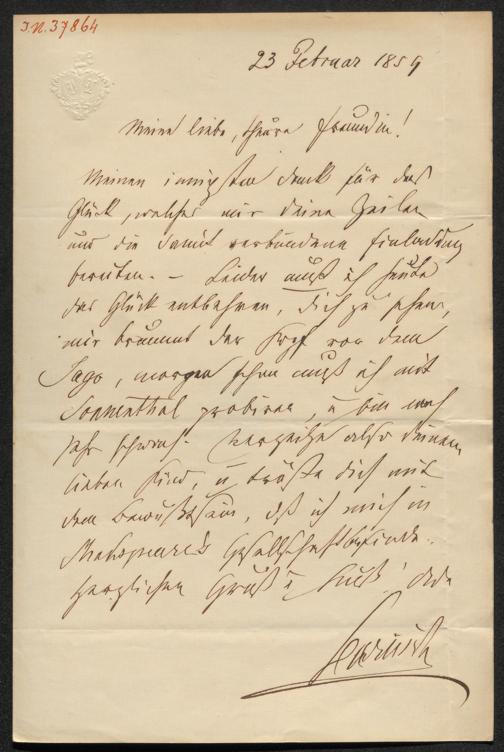 I.N. 37864
23 Februar 1859
Meine liebe, theure Freundin!
Meinen innigsten Dank für das
Glück, welches mir deine Zeilen
und die damit verbundene Einladung
bereiten. – Leider muß ich heute
das Glück entbehren, dich zu sehen,
mir brummt der Kopf von dem
Jago, morgen schon muß ich mit
Sonnenthal probiren, u bin noch
sehr schwach. Verzeihe also deinem
lieben Kind, u tröste dich mit
dem Bewußtsein, daß ich mich in
Shakspeare's Gesellschaft befinde.
Herzlichen Gruß u Kuß!